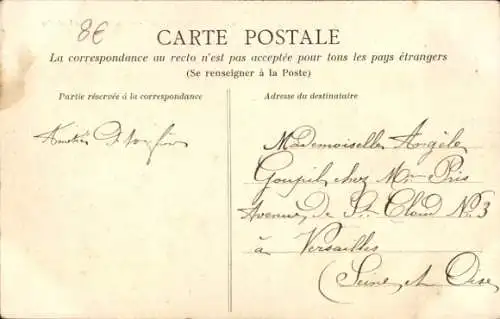 8€
CARTE POSTALE
La correspondance au recto n'est pas acceptée pour tous les pays étrangers
(Se renseigner à la Poste)
Partie réservée à la correspondance
Adresse du destinataire
Mademoiselle Angèle
Goupil chez Mr Pris
Avenue de St Cloud No 3
à Versailles
(Seine et Oise